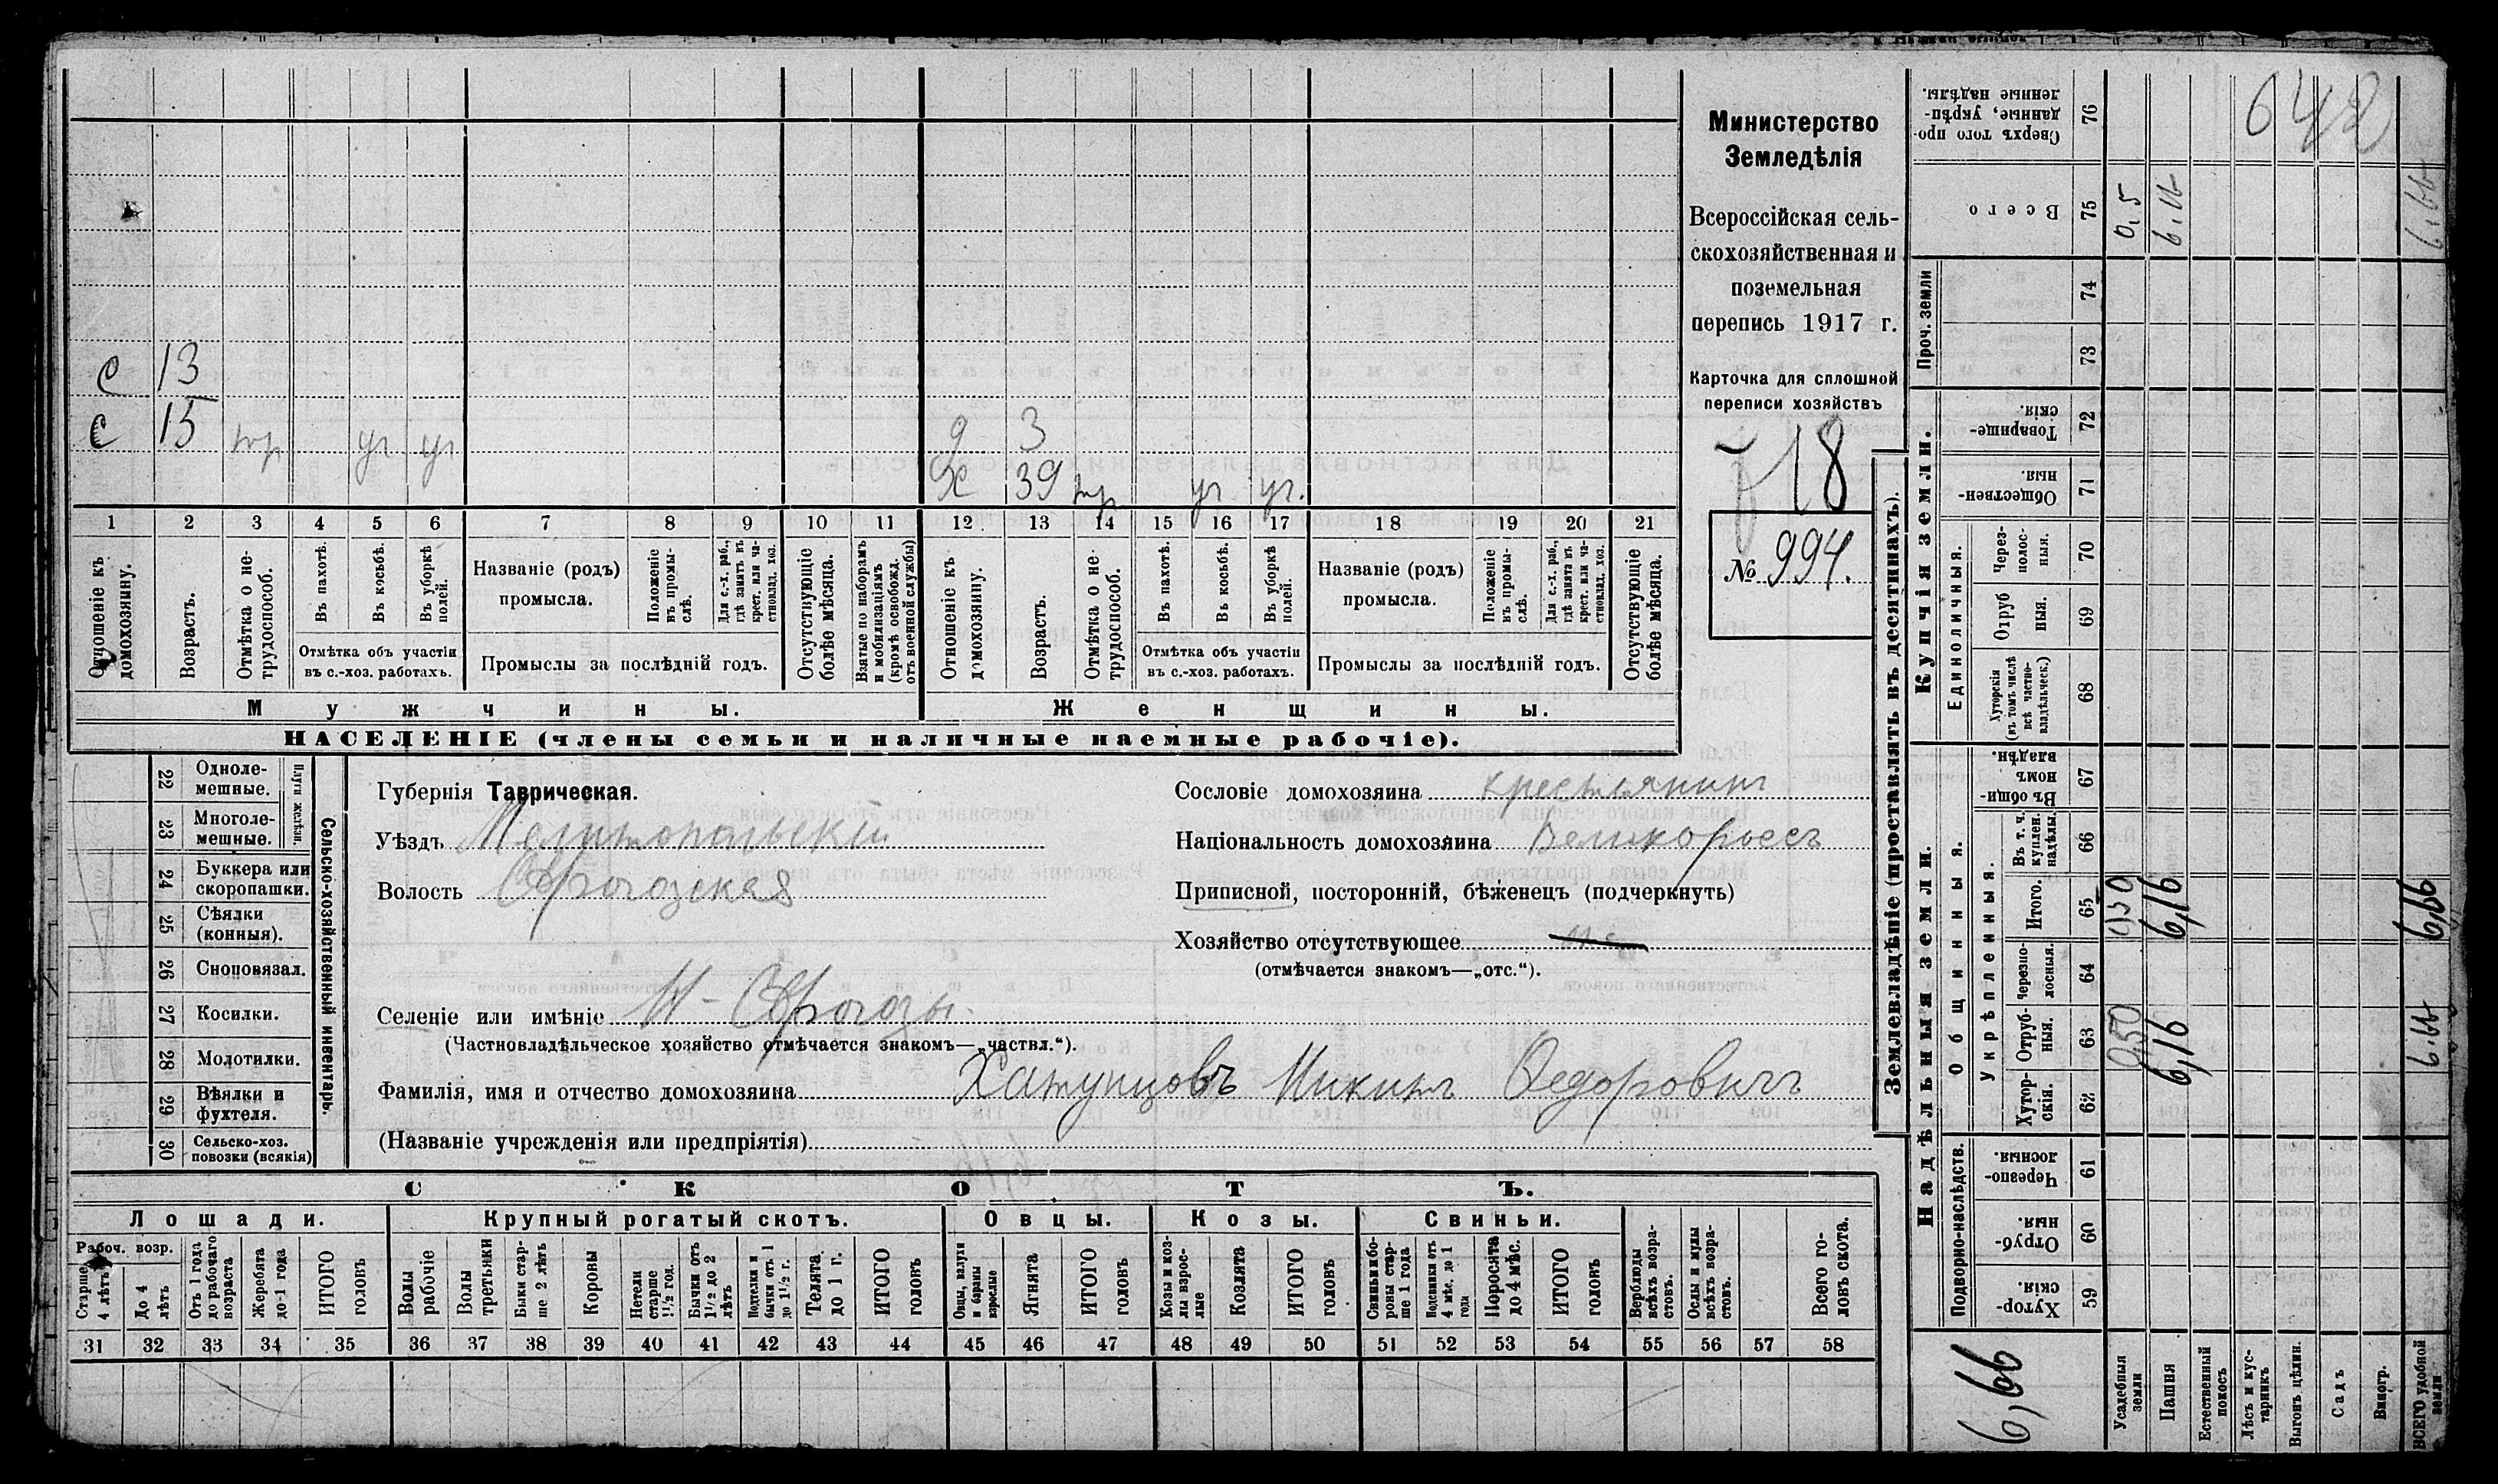 с 13
с 15 тр уч уч
д 3
Ж 39 тр уч уч.
1 2 3 4 5 6 7 8 9 10 11 12 13 14 15 16 17 18 19 20 21
Отношеніе къ домохозяину.
Возрастъ.
Отмѣтка о не-
трудоспособ.
Въ пахотѣ.
Въ косьбѣ.
Въ уборкѣ
полей.
Отмѣтка объ участіи
въ с.-хоз. работахъ.
Названіе (родъ)
промысла.
Положеніе
въ промы-
слѣ.
Для с.-х. раб.,
гдѣ занятъ въ
крест. или ча-
стновлад. хоз.
Промыслы за послѣдній годъ.
Отсутствующіе
болѣе мѣсяца.
Взятые по наборамъ
и мобилизаціямъ
(кромѣ освобожд.
отъ военной службы)
Отношеніе къ
домохозяину.
Возрастъ.
Отмѣтка о не-
трудоспособ.
Въ пахотѣ.
Въ косьбѣ.
Въ уборкѣ
полей.
Отмѣтка объ участіи
въ с.-хоз. работахъ.
Названіе (родъ)
промысла.
Положеніе
въ промы-
слѣ.
Для с.-х. раб.,
гдѣ занята въ
крест. или ча-
стновлад. хоз.
Промыслы за послѣдній годъ.
Отсутствующіе
болѣе мѣсяца.
Мужчины.
Женщины.
НАСЕЛЕНІЕ (члены семьи и наличные наемные рабочіе).
Министерство
Земледѣлія
Всероссійская сель-
скохозяйственная и
поземельная
перепись 1917 г.
Карточка для сплошной
переписи хозяйствъ
18
№ 994.
Сельско-хозяйственный инвентарь.
Плуги желѣзн.
22 Одноле-
мешные.
23 Многоле-
мешные.
24 Буккера или
скоропашки.
25 Сѣялки
(конныя).
26 Сноповязал.
27 Косилки.
28 Молотилки.
29 Вѣялки и
фухтеля.
30 Сельско-хоз.
повозки (всякія)
Губернія Таврическая.
Уѣздъ Мелитопольскій
Волость Сѣрогозская
Сословіе домохозяина крестьянинъ
Національность домохозяина Великороссъ
Приписной, посторонній, бѣженецъ (подчеркнуть)
Хозяйство отсутствующее
(отмѣчается знакомъ—„отс.“).
Селеніе или имѣніе Н-Сѣрогозы.
(Частновладѣльческое хозяйство отмѣчается знакомъ—„частвл.“).
Фамилія, имя и отчество домохозяина Хатунцовъ Никитъ Федоровичъ
(Названіе учрежденія или предпріятія)
СКОТЪ.
Лошади. Крупный рогатый скотъ. Овцы. Козы. Свиньи.
Рабоч. возр.
Старше
4 лѣтъ
До 4
лѣтъ
Отъ 1 года
до рабочаго
возраста
Жеребята
до 1 года
ИТОГО
головъ
Волы
рабочіе
Волы
третьяки
Быки стар-
ше 2 лѣтъ
Коровы
Нетели
старше
1½ год.
Бычки отъ
1½ до 2
лѣтъ
Подтелки и
бычки отъ 1
до 1½ г.
Телята
до 1 г.
ИТОГО
головъ
Овцы, валухи
и бараны
взрослые
Ягнята
ИТОГО
головъ
Козы и коз-
лы взрос-
лые
Козлята
ИТОГО
головъ
Свиньи и бо-
ровы стар-
ше 1 года
Подсвинки отъ
4 мѣс. до 1
года
Поросята
до 4 мѣс.
ИТОГО
головъ
Верблюды
всѣхъ возра-
стовъ.
Ослы и мулы
всѣхъ возра-
стовъ.
Всего го-
ловъ скота.
31 32 33 34 35 36 37 38 39 40 41 42 43 44 45 46 47 48 49 50 51 52 53 54 55 56 57 58
Землевладѣніе (проставлять въ десятинахъ).
Надѣльныя земли.
Купчія земли.
Проч. земли
Подворно-наслѣдств.
Общинныя.
Укрѣпленныя.
Единоличныя.
Хутор-
скія.
59
Отруб-
ныя.
60
Черезпо-
лосныя.
61
Хутор-
скія.
62
Отруб-
ныя.
63
Черезпо-
лосныя.
64
Итого.
65
Въ т. ч.
куплен.
надѣлы.
66
Въ общи-
номъ
владѣн.
67
Хуторскія
(въ томъ числѣ
всѣ частно-
владѣльческ.)
68
Отруб
ныя.
69
Через-
полос-
ныя.
70
Обществен-
ныя.
71
Товарище-
скія.
72
73
74
Всего
75
Сверхъ того про-
данные, укрѣп-
ленные надѣлы.
76
Усадебныя
земли
0,50
0,5
Пашня
6,16
6,16
6,16
Естественный
покосъ
Лѣсъ и кус-
тарникъ
Выгонъ цѣлин.
Садъ
Виногр.
ВСЕГО удобной
земли
6,66
6,66
6,66
6,66
642